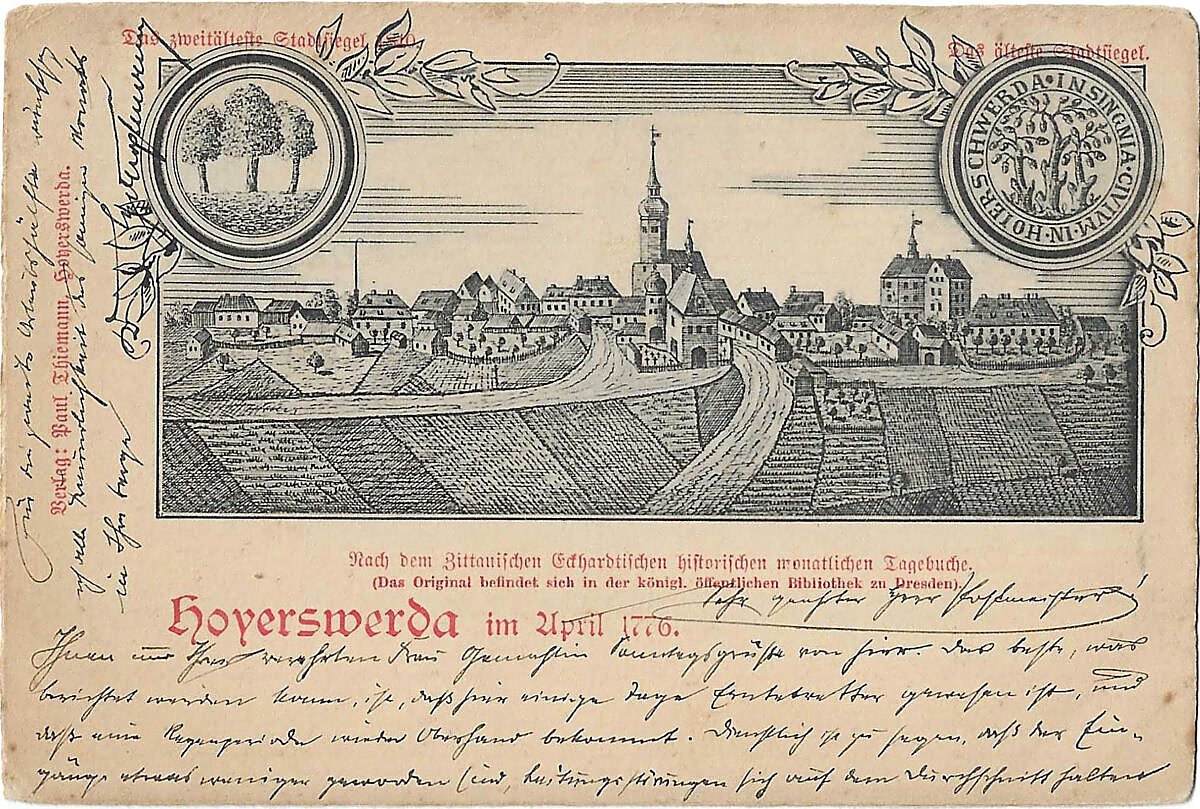 Das zweitälteste Stadtsiegel 1810.
Das älteste Stadtsiegel.
INSINGNIA·CIVIVM·IN·HOIERSCHWERDA·
Verlag: Paul Thiemann, Hoyerswerda.
Nach dem Zittauischen Eckhardtischen historischen monatlichen Tagebuche.
(Das Original befindet sich in der königl. öffentlichen Bibliothek zu Dresden).
Hoyerswerda im April 1776.
Sehr geehrter Herr Postmeister!
Ihnen und Ihrer verehrten Frau Gemahlin Sonntagsgrüße von hier. Das beste, was
berichtet werden kann, ist, daß hier einige Tage Erntewetter gewesen ist, und
daß eine Regenperiode wieder Oberhand bekommt. Dienstlich ist zu sagen, daß der Ein-
gänge etwas weniger geworden sind, Leitungsstörungen sich auf dem Durchschnitt halten
Für die
ich alle
in Ihr